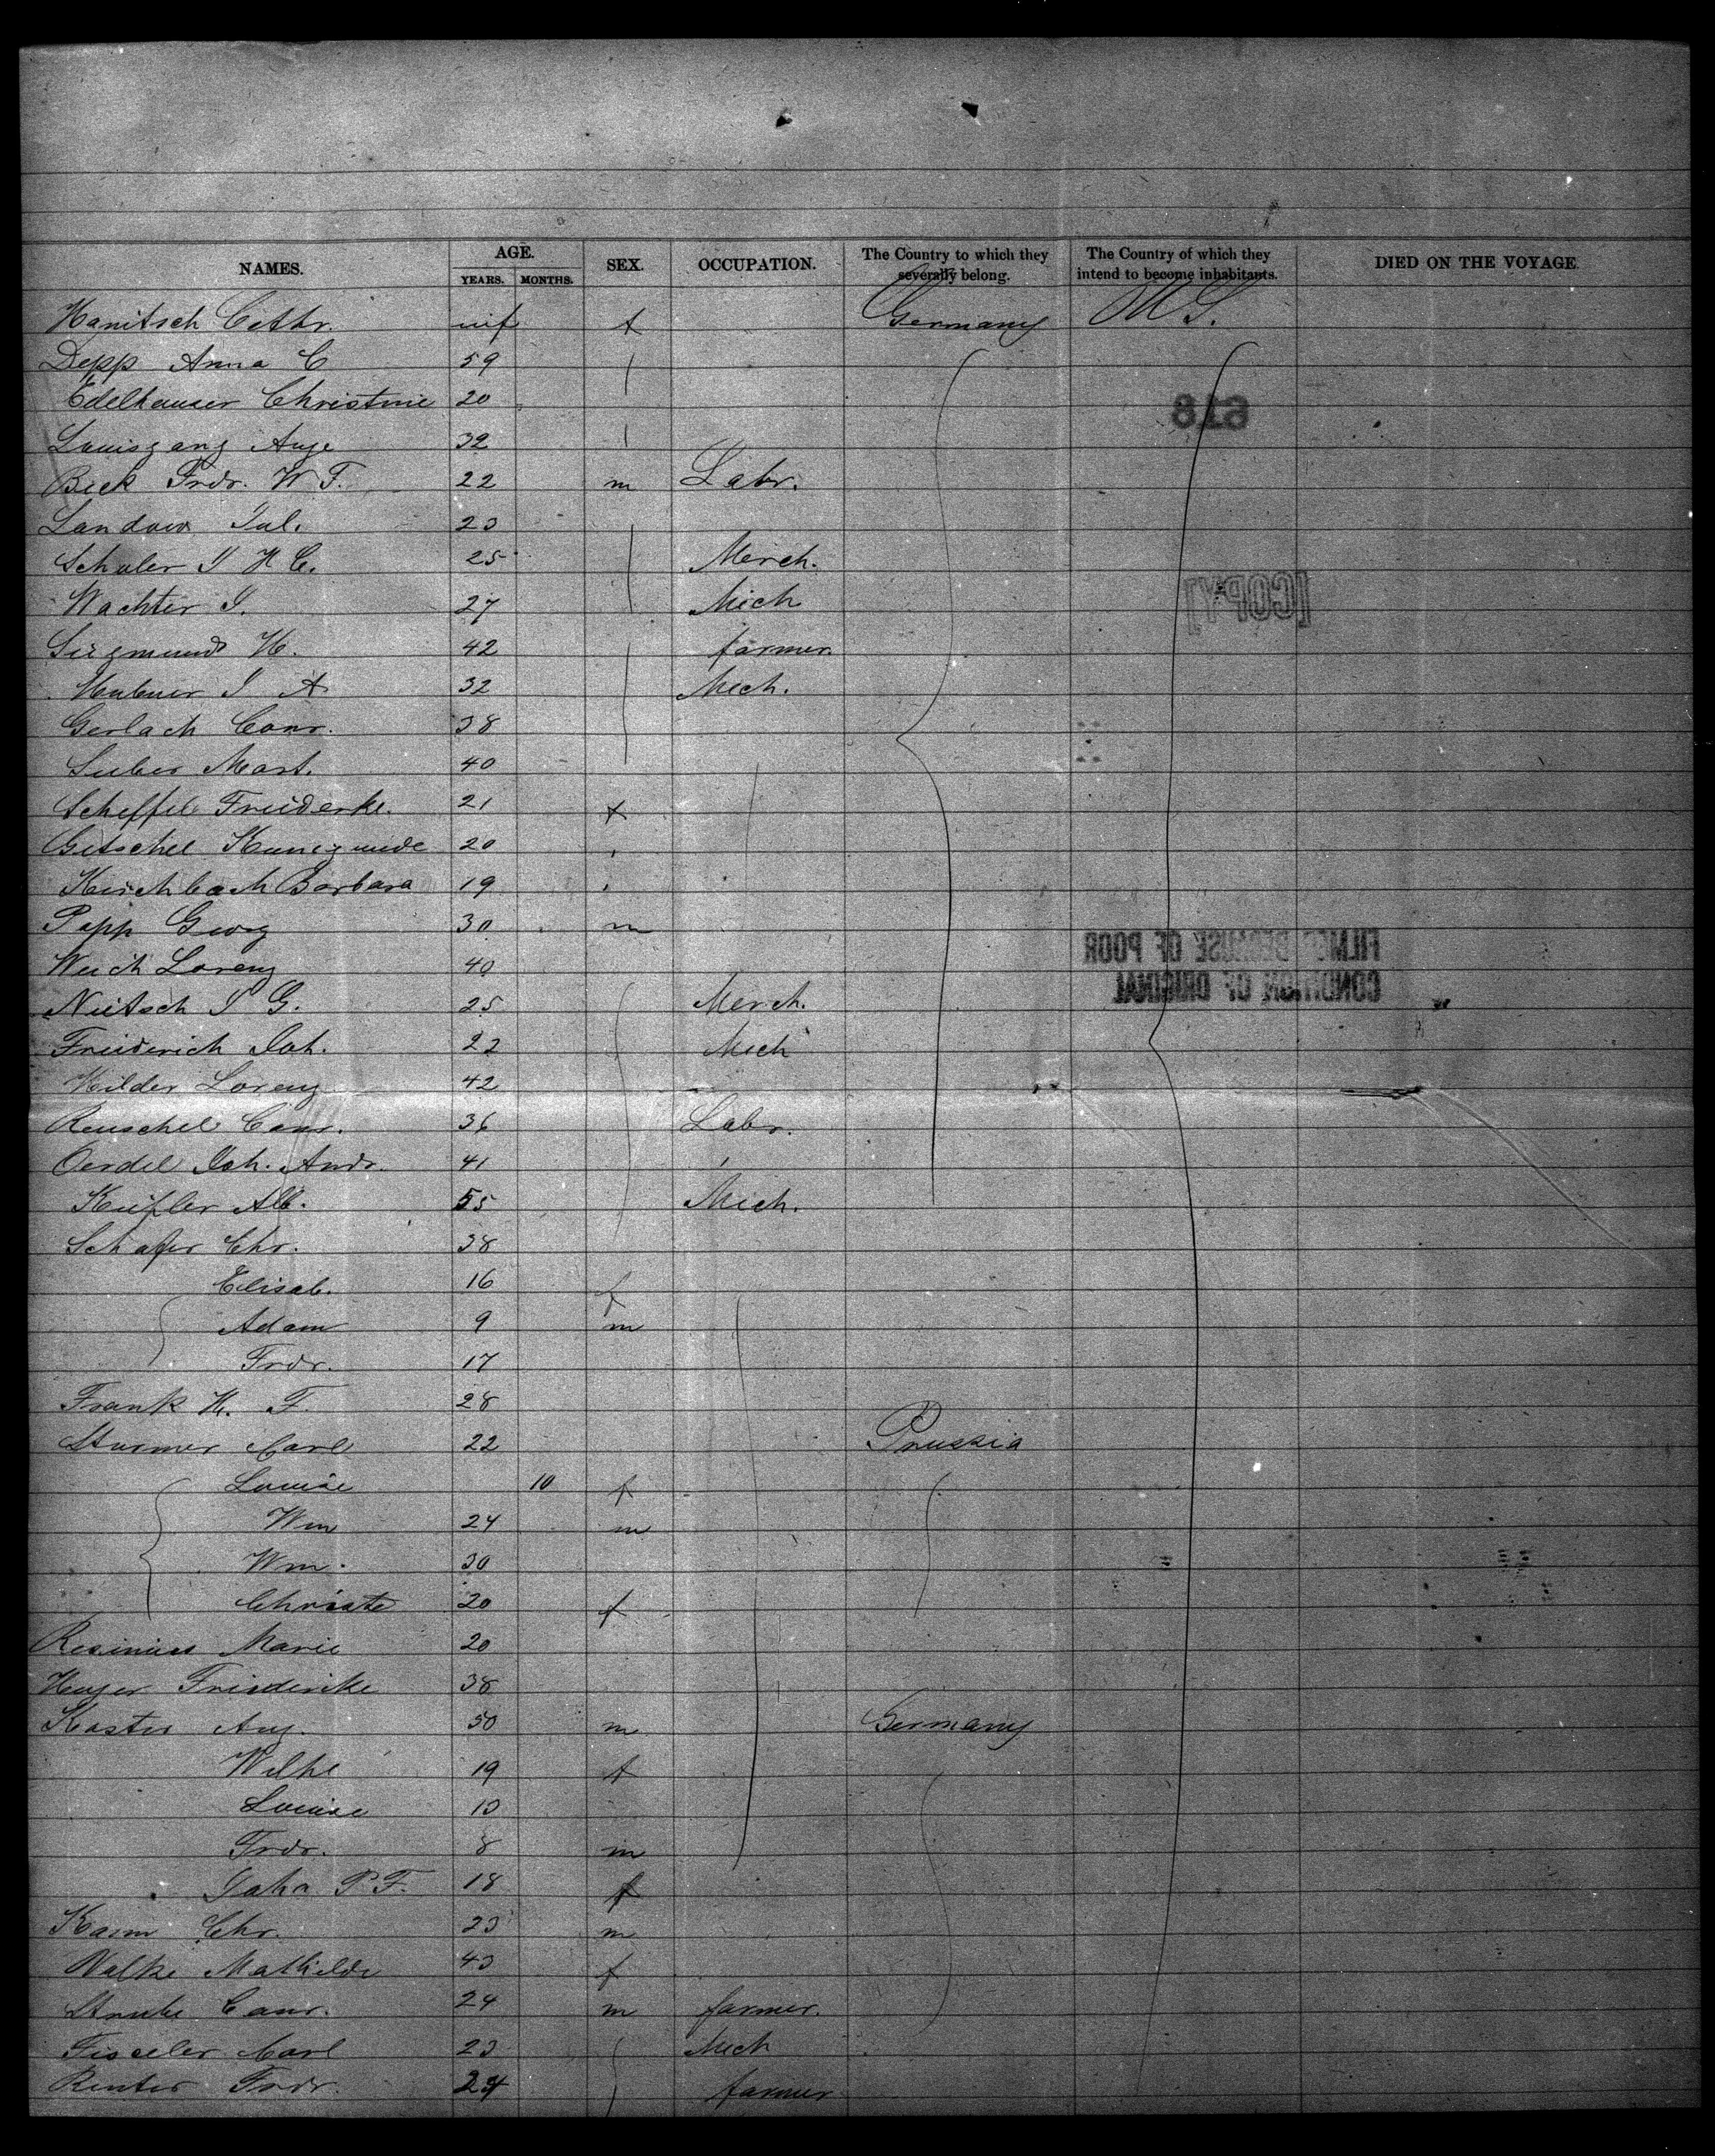 NAMES. AGE. YEARS. MONTHS. SEX. OCCUPATION. The Country to which they severally belong. The Country of which they intend to become inhabitants. DIED ON THE VOYAGE.
Hanitsch Cathr. inf f Germany U S.
Depp Anna C 59
Edelhauser Christine 20
818
Auge 32
Beck Frdr. W F. 22 m Labr.
Landow Jul. 23
Schuler J H C. 25 Merch.
[COPY]
Wachter J. 27 Mech
Siegmund H. 42 farmer.
Hubner J A 32 Mech.
Gerlach Conr. 38
Mart. 40
Scheffel Friederke. 21 f
Getschel Kunigunde 20
Kirschbach Barbara 19
Popp Georg 30 m
FILMED BECAUSE OF POOR
Weich Lorenz 40
CONDITION OF ORIGINAL
Nietsch J G. 25 Merch.
Friederich Joh. 22 Mech
Hilder Lorenz 42
Reuschel Conr. 36 Labr.
Oerdel Joh. Andr. 41
Alb. 55 Mech.
Schafer Chr. 38
Elisab. 16 f
Adam 9 m
Frdr. 17
Frank H. F. 28
Sturmer Carl 22 Prussia
Louise 10 f
Wm 24 m
Wm. 30
Christe 20 f
Marie 20
Heyer Friederike 38
Koster Aug. 50 m Germany
Wilhe 19 f
Louise 13
Frdr. 8 m
P F. 18 f
Chr. 23 m
Mathilde 43 f
Conr. 24 m farmer.
Carl 23 Mech
Frdr. 24 farmer